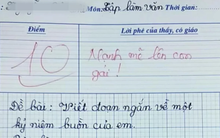 Môn: Tập làm văn
Điểm
Lời phê của thầy, cô giáo
10
Mạnh mẽ lên con
gái !
Đề bài : Viết đoạn ngắn về một
kỷ niệm buồn của em.